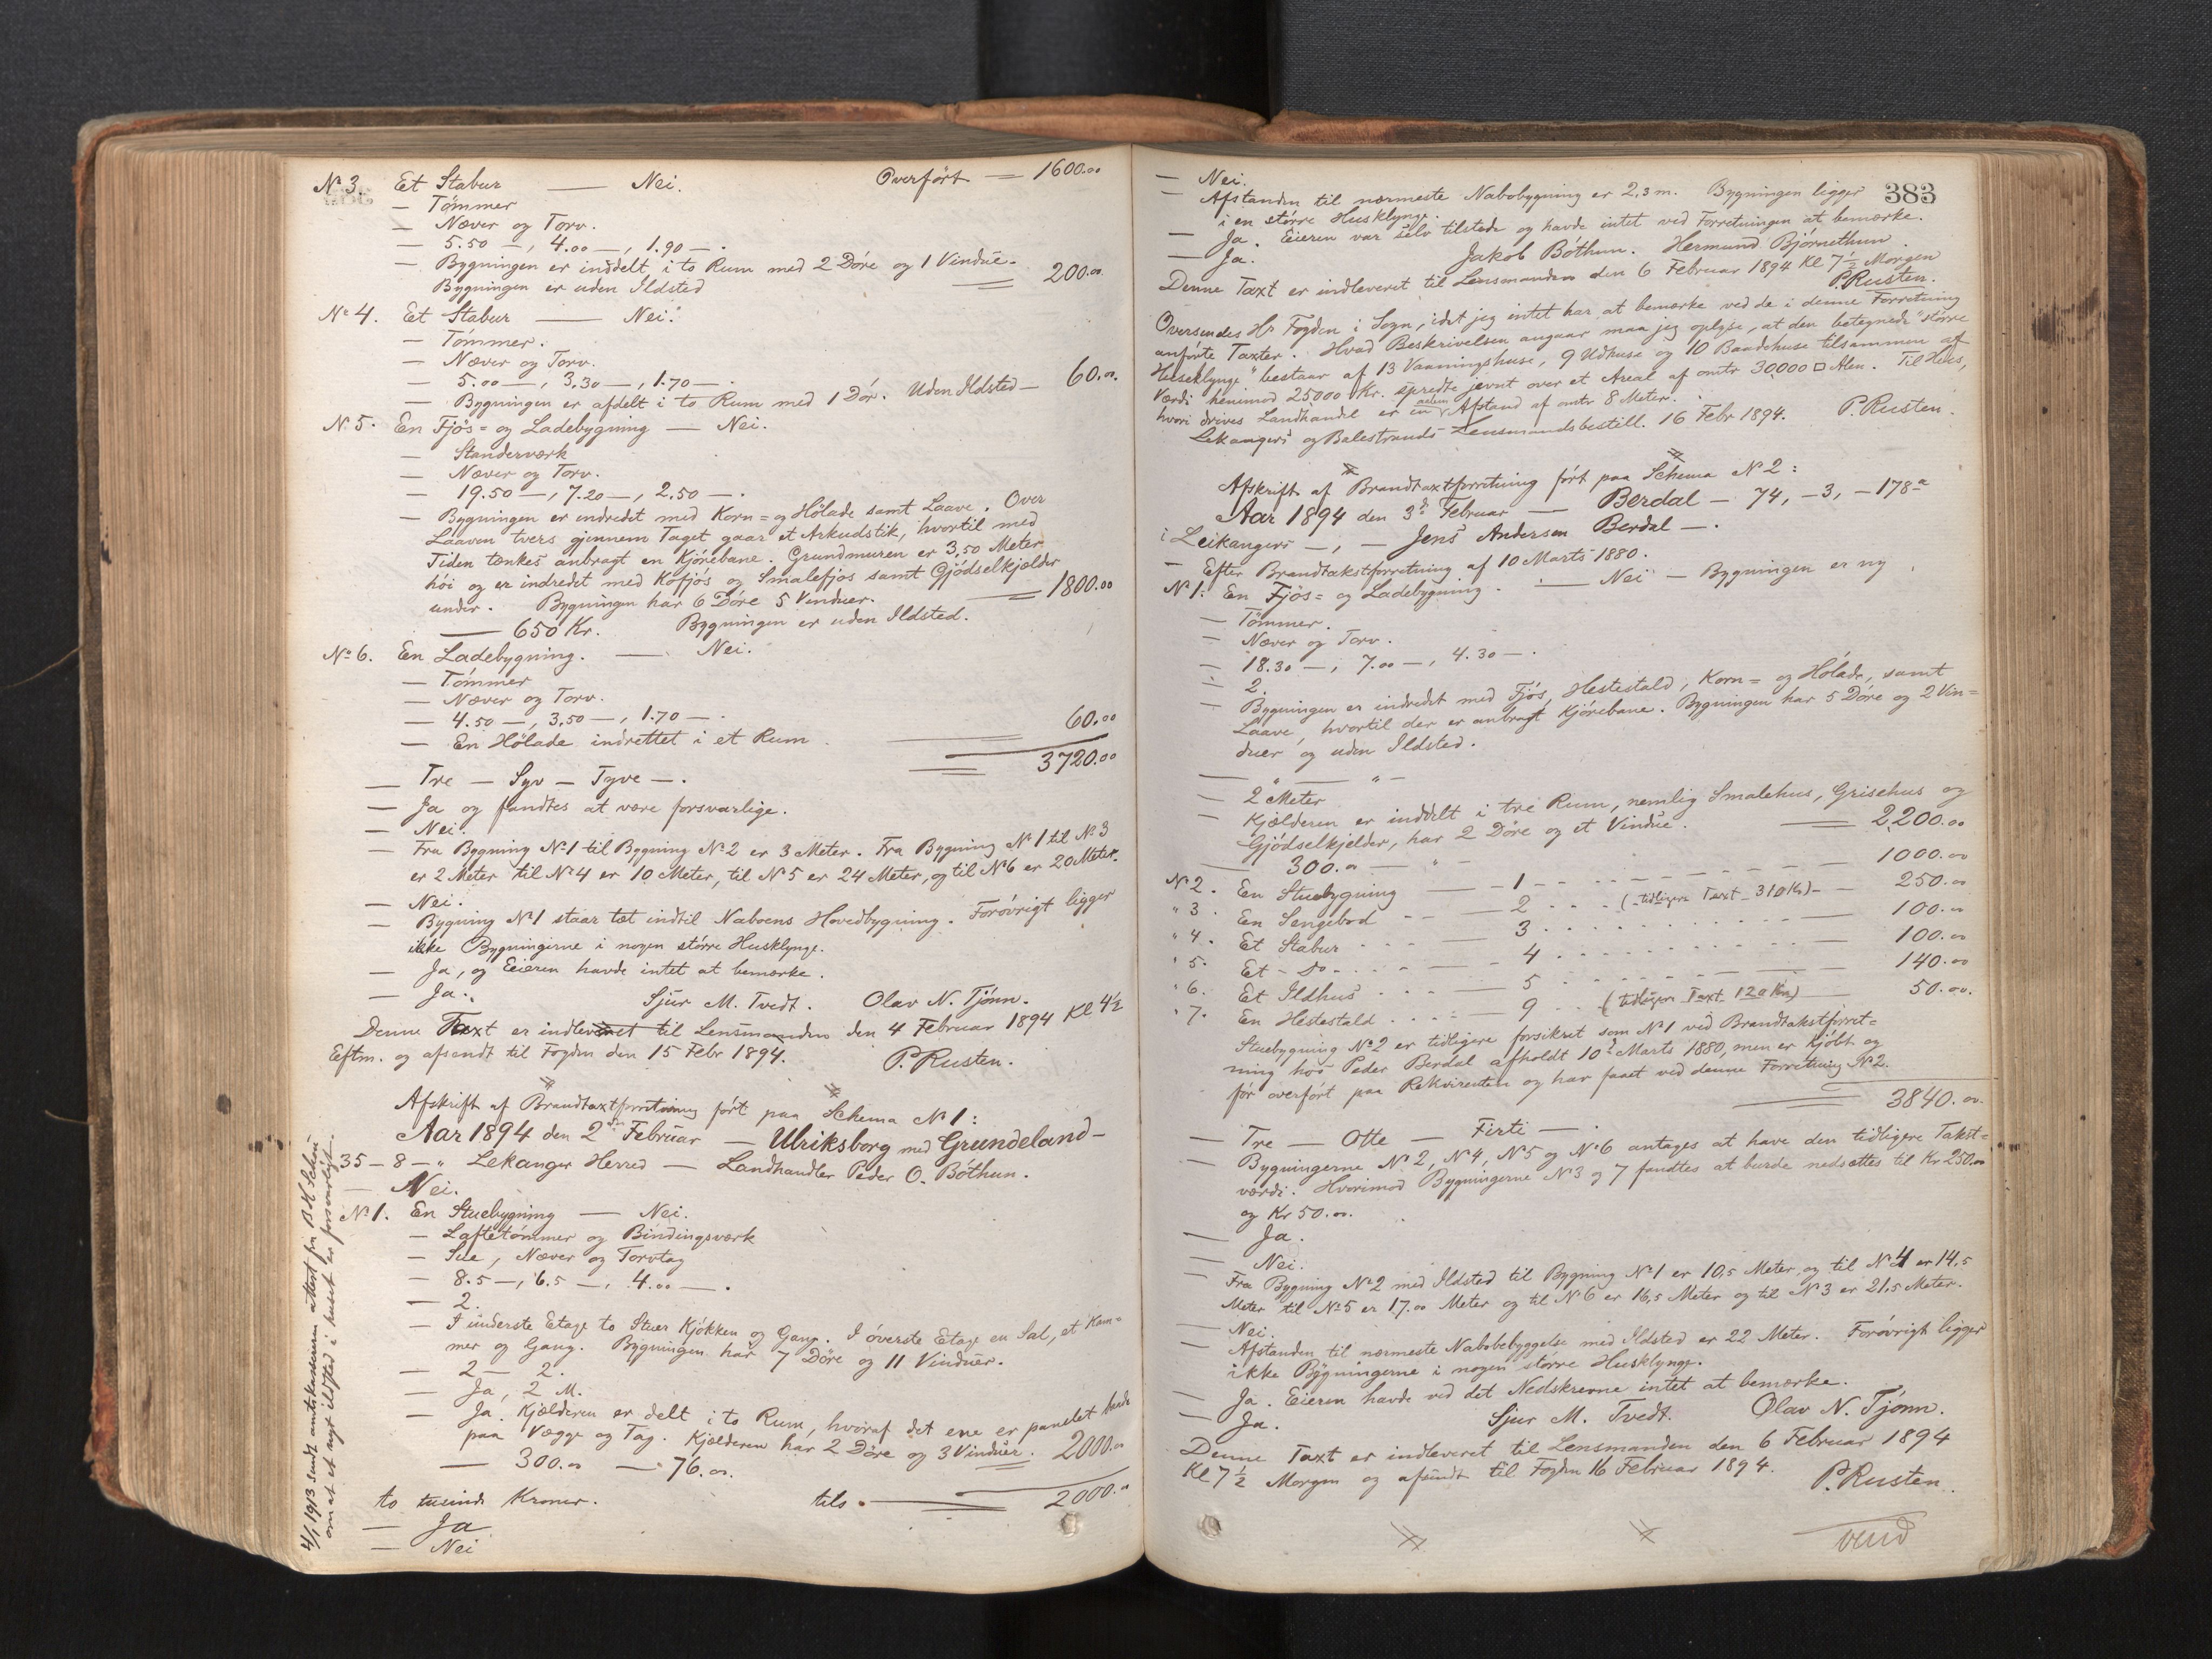 № 3. Et Stabur — Nei. Overført = 1600.00
— Tömmer
— Næver og Torv.
— 5.50 —, 4.00 —, 1.90 —.
— Bygningen er inddelt i to Rum med 2 Döre og 1 Vindue.
Bygningen er uden Ildsted = 200.00
№ 4. Et Stabur — Nei.
— Tömmer.
— Næver og Torv.
— 5.00 —, 3,30 —, 1.70 —.
— Bygningen er afdelt i to Rum med 1 Dör. Uden Ildsted — 60.00.
№ 5. En Fjös- og Ladebygning — Nei.
— Standerværk
— Næver og Torv.
— 19.50 —, 7.20 —, 2.50 —.
— Bygningen er indredet med Korn- og Hölade samt Laave. Over
Laaven tvers gjennem Taget gaar et Arkudstik, hvortil med
Tiden tænkes anbragt en Kjörebane. Grundmuren er 3,50 Meter
höi og er indredet med Kofjös og Smalefjøs samt Gjödselkjælder
under. Bygningen har 6 Döre 5 Vinduer. = 1800.00
— 650 Kr. Bygningen er uden Ildsted.
№ 6. En Ladebygning. — Nei.
— Tömmer
— Næver og Torv.
— 4.50 —, 3,50 —, 1.70 —.
— En Hölade indrettet i et Rum 60.00
3720.00
— Tre — Syv — Tyve —.
— Ja og fandtes at være forsvarlige.
— Nei.
— Fra Bygning № 1 til Bygning № 2 er 3 Meter. Fra Bygning № 1 til № 3
er 2 Meter til № 4 er 10 Meter, til № 5 er 24 Meter, og til № 6 er 20 Meter.
— Nei.
— Bygning № 1 staar tæt indtil Naboens Hovedbygning. Forövrigt ligger
ikke Bygningerne i nogen större Husklynge.
— Ja, og Eieren havde intet at bemærke.
— Ja. Sjur M. Tvedt. Olav N. Tjönn.
Denne Taxt er indleveret til Lensmanden den 4 Februar 1894 Kl 4½
Eftm. og afsendt til Fogden den 15 Febr 1894. P. Rusten.
Afskrift af Brandtaxtforretning fört paa Schema № 1:
Aar 1894 den 2den Februar — Ulriksborg med Grundeland —
35 — 8 — " Lekanger Herred — Landhandler Peder O. Böthun.
— Nei.
№ 1. En Stuebygning — Nei.
— Laftetömmer og Bindingsværk
— Sue, Næver og Torvtag
— 8.5 —, 6.5 —, 4.00 —.
— 2.
— I underste Etage to Stuer Kjökken og Gang. I överste Etage en Sal, et Kam-
mer og Gang. Bygningen har 7 Döre og 11 Vinduer.
— 2 — 2.
— Ja, 2 M.
— Ja. Kjælderen er delt i to Rum, hvoraf det ene er panelet baade
paa Vægge og Tag. Kjælderen har 2 Döre og 3 Vinduer. 2000.00
— 300.00 — 76.00.
to tusinde Kroner. tils. = 2000.00
— Ja
— Nei
4/1 1913 sendt amtskassereren attest fra B K Schøn
om at et nyt ildsted i huset er forsvarligt.
383
— Nei.
— Afstanden til nærmeste Nabobygning er 2,3 m. Bygningen ligger
i en större Husklynge.
— Ja. Eieren var selv tilstede og havde intet ved Forretningen at bemærke.
— Ja. Jakob Böthun. Hermund Björnethun.
Denne Taxt er indleveret til Lensmanden den 6 Februar 1894 Kl 7½ Morgen
P. Rusten.
Oversendes Hr Fogden i Sogn, idet jeg intet har at bemærke ved de i denne Forretning
anförte Taxter. Hvad Beskrivelsen angaar maa jeg oplyse, at den betegnede "större
Husklynge" bestaar af 13 Vaaningshuse, 9 Udhuse og 10 Baadehuse tilsammen af
Værdi henimod 25000 Kr. spredte jevnt over et Areal af omtr 30000 □ Alen. Til Hus,
hvori drives Landhandel er en Afstand af omtr 8 Meter.
Lekangers og Balestrands Lensmandsbestill. 16 Febr 1894. P. Rusten.
Afskrift af Brandtaxtforretning fört paa Schema № 2:
Aar 1894 den 3die Februar — Berdal — 74, — 3, — 178 a
i Leikangers —, — Jens Andersen Berdal —.
— Efter Brandtakstforretning af 10 Marts 1880.
№ 1. En Fjös- og Ladebygning. — Nei — Bygningen er ny.
— Tömmer.
— Næver og Torv.
— 18.30 —, 7.00 —, 4.30 —.
— 2.
— Bygningen er indredet med Fjös, Hestestald, Korn- og Hölade, samt
Laave, hvortil der er anbragt Kjörebane. Bygningen har 5 Döre og 2 Vin-
duer og uden Ildsted.
— " — " —
— 2 Meter
— Kjælderen er inddelt i tre Rum, nemlig Smalehus, Grisehus og
Gjödselkjelder, har 2 Döre og et Vindue. = 2200.00
— 300.00 — " —
№ 2. En Stuebygning — 1 — 1000.00
" 3. En Sengebod — 2 (tidligere Taxt 310 Kr) — 250.00
" 4. Et Stabur — 3 — 100.00
" 5. Et Do. — 4 — 100.00
" 6. Et Ildhus — 5 — 140.00
" 7. En Hestestald — 9 (tidligere Taxt 120 Kr) 50.00.
Stuebygning № 2 er tidligere forsikret som № 1 ved Brandtakstforret-
ning hos Peder Berdal afholdt 10de Marts 1880, men er kjöbt og
för overfört paa Rekvirenten og har faaet ved denne Forretning № 2.
3840.00.
— Tre — Otte — Firti —.
— Bygningerne № 2, № 4, № 5 og № 6 antages at have den tidligere Takst-
værdi. Hvorimod Bygningerne № 3 og 7 fandtes at burde nedsættes til Kr 250.00
og Kr 50.00.
— Ja.
— Nei.
— Fra Bygning № 2 med Ildsted til Bygning № 1 er 10,5 Meter og til № 4 er 14,5
Meter til № 5 er 17.00 Meter og til № 6 er 16,5 Meter og til № 3 er 21,5 Meter.
— Nei.
— Afstanden til nærmeste Nabobebyggelse med Ildsted er 22 Meter. Forövrigt ligger
ikke Bygningerne i nogen större Husklynge.
— Ja. Eieren havde ved det Nedskrevne intet at bemærke.
— Ja. Sjur M. Tvedt. Olav N. Tjönn.
Denne Taxt er indleveret til Lensmanden den 6 Februar 1894
Kl 7½ Morgen og afsendt til Fogden 16 Februar 1894. P. Rusten.
vend